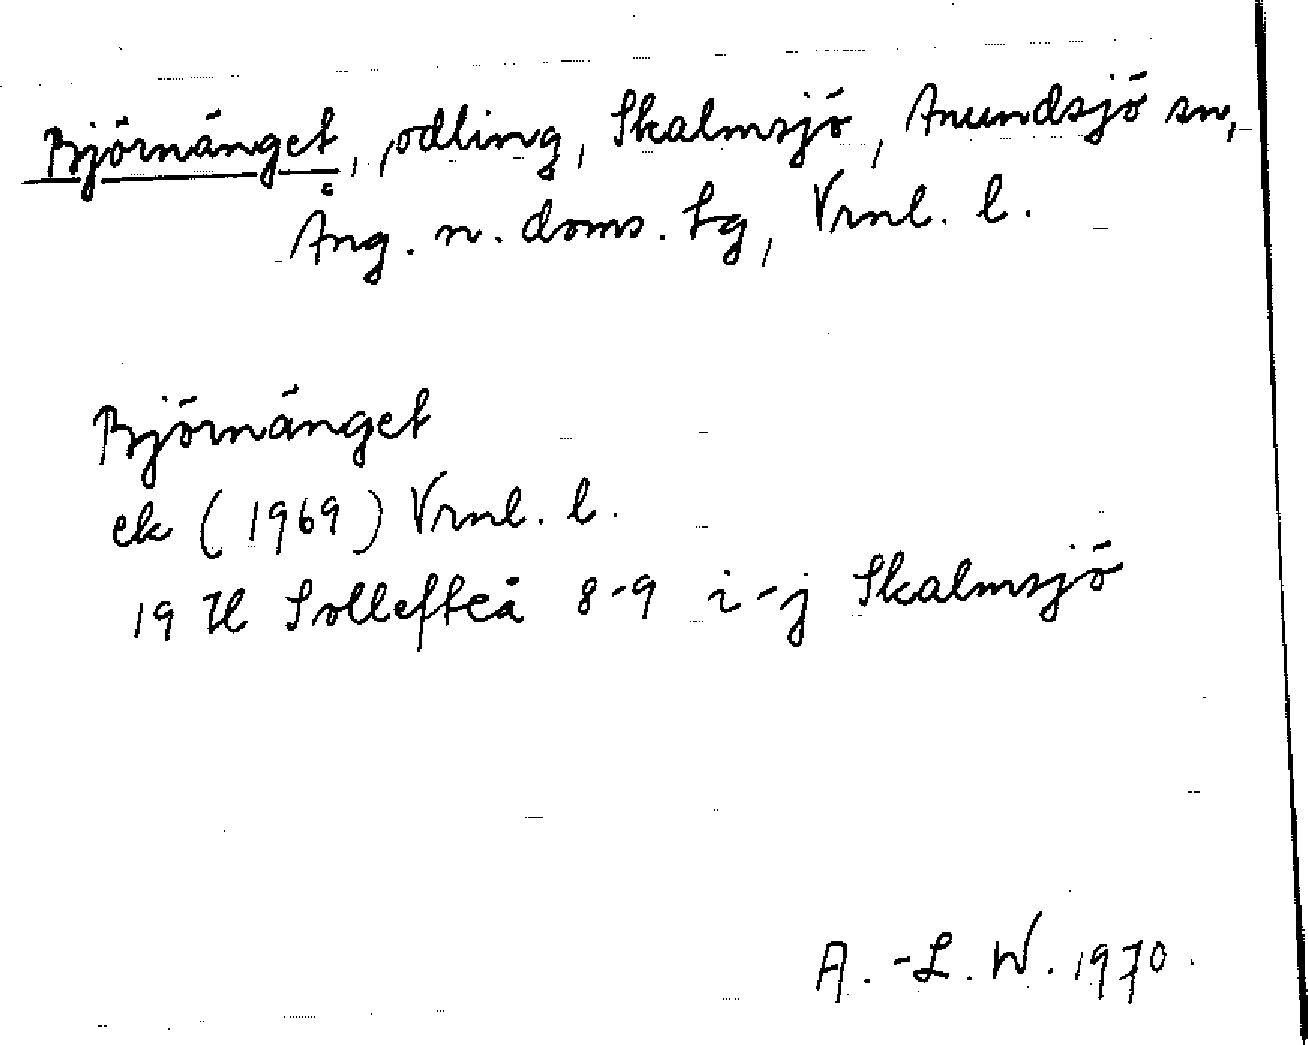 Björnänget, odling, Skalmsjö, Anundsjö sn,
Ång. n. doms. tg, Vrnl. l.
Björnänget
ek (1969) Vrnl. l.
19 H Sollefteå 8-9 i-j Skalmsjö
A.-L. W. 1970.